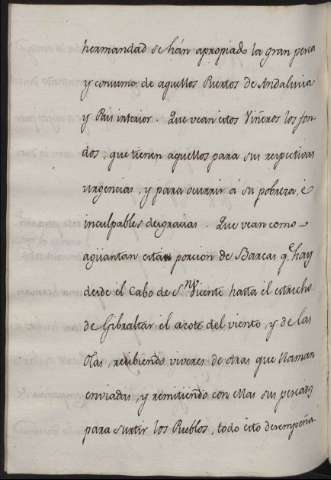 hermandad se hán apropiado la gran pesca
y consumo de aquellos Puertos de Andalucia
y Pais interior. Que vean estos Viñeros los fon-
dos, que tienen aquellos para sus respectivas
urgencias, y para ocurrir á su pobreza, é
inculpables desgracias. Que vean como
aguantan esta porcion de Barcas q.e hay
desde el Cabo de S.n Vicente hasta el estrecho
de Gibraltar el azote del viento, y de las
Olas, recibiendo viveres de otras que llaman
enviadas, y remitiendo con ellas sus pescados
para surtir los Pueblos, todo esto desempeña